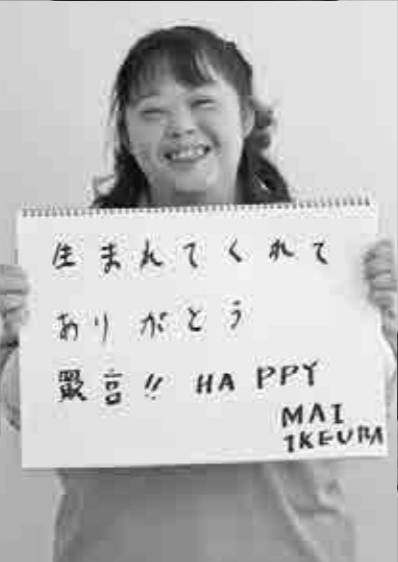 生まれてくれて
ありがとう
最高!! HAPPY
MAI
IKEURA